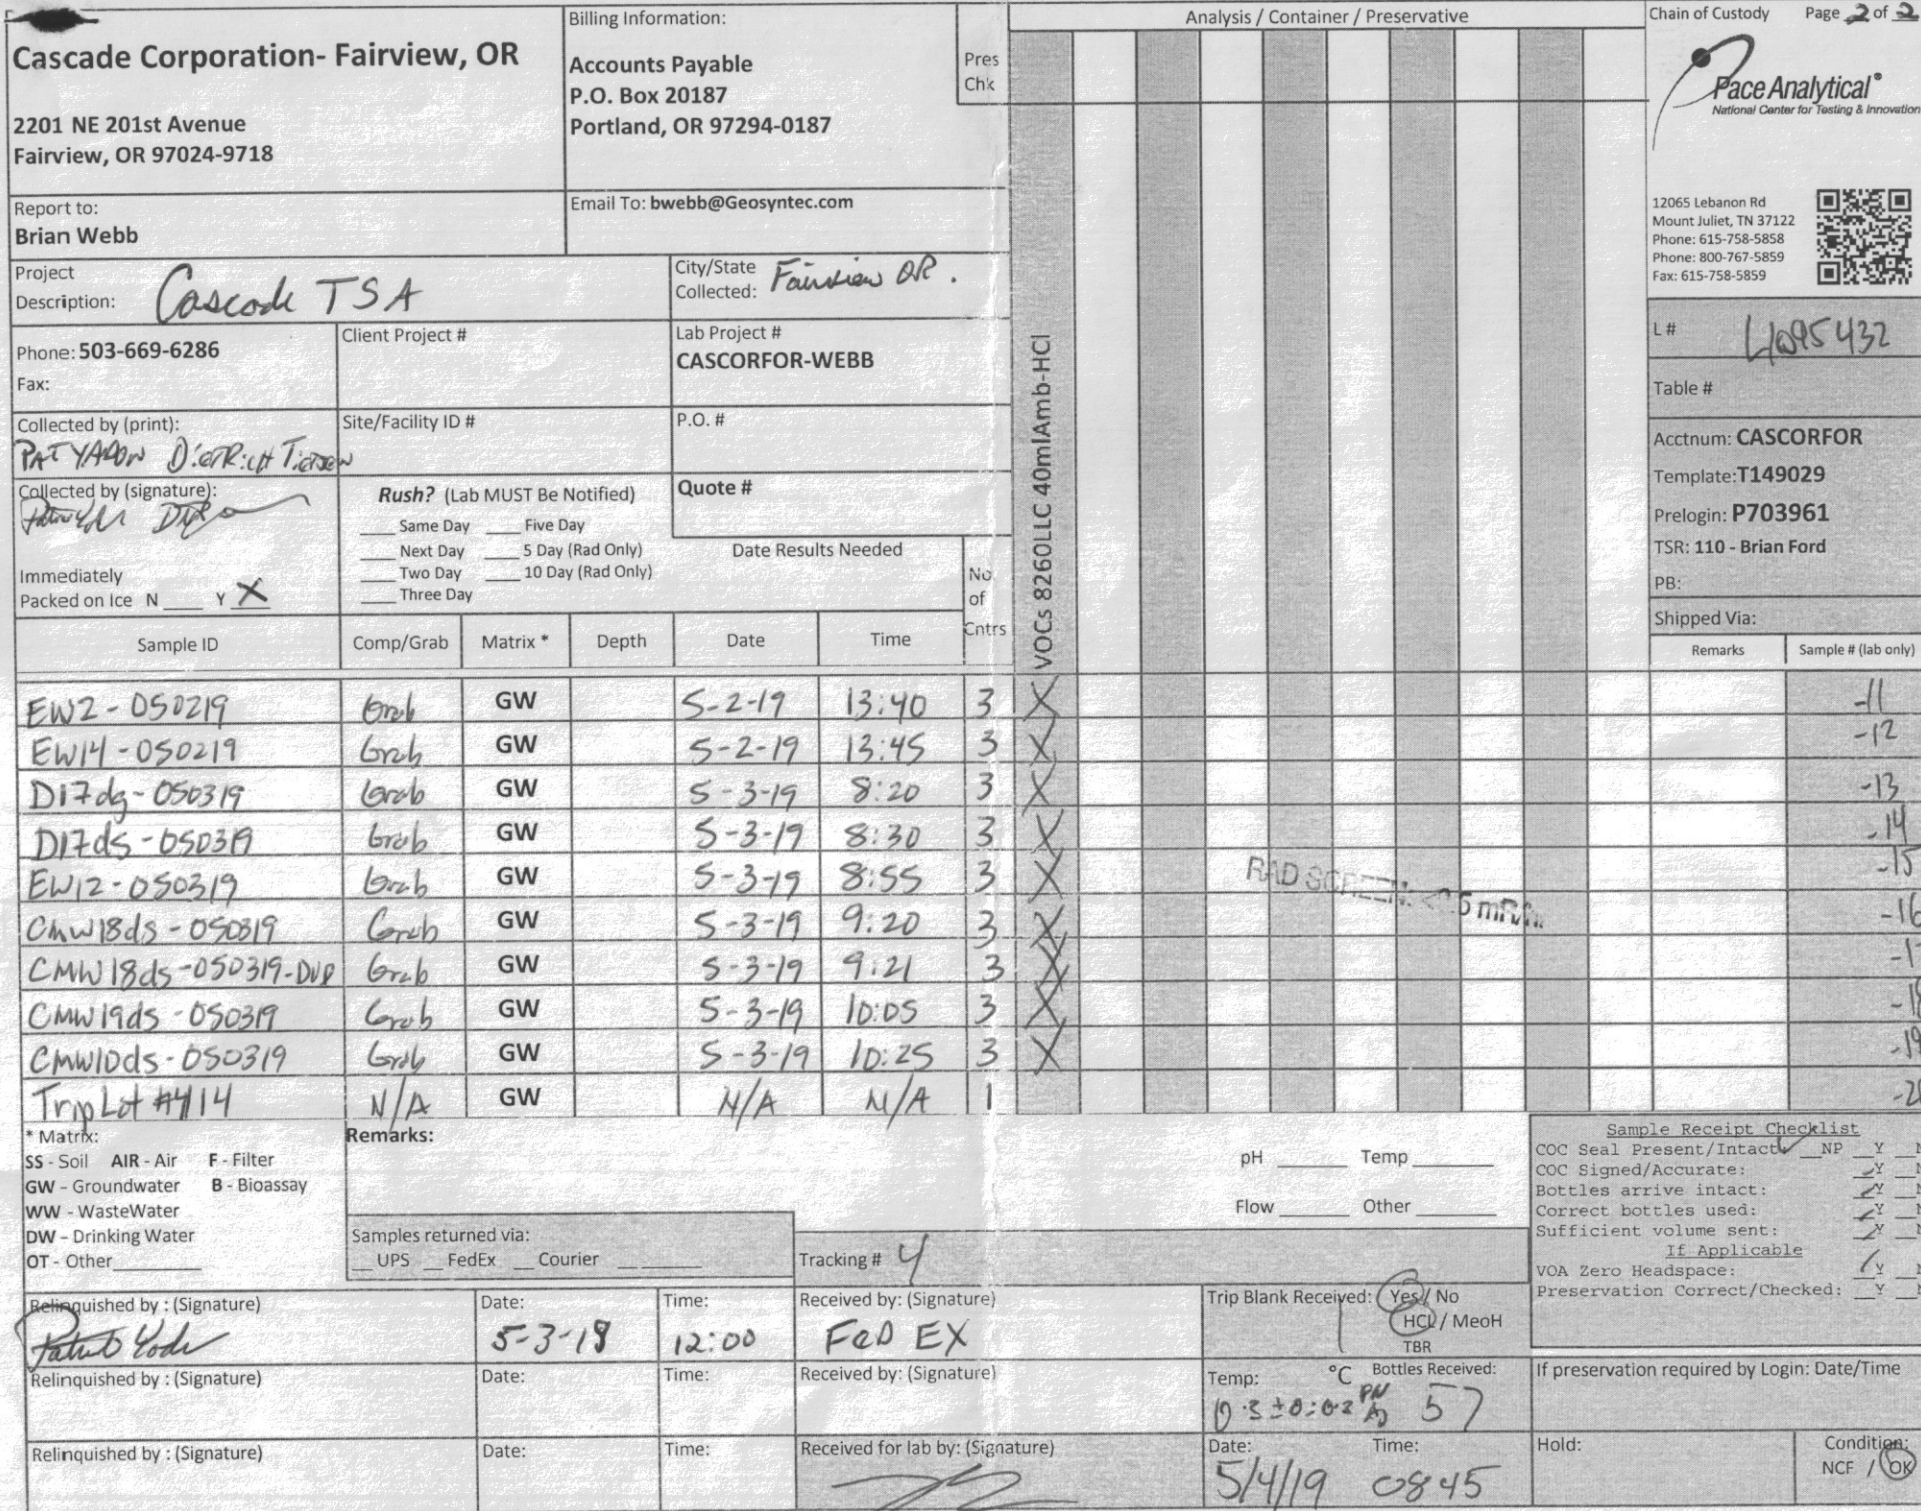 Cascade Corporation- Fairview, OR
2201 NE 201st Avenue
Fairview, OR 97024-9718
Billing Information:
Accounts Payable
P.O. Box 20187
Portland, OR 97294-0187
Pres
Chk
Analysis / Container / Preservative
Chain of Custody Page 2 of 2
Pace Analytical®
National Center for Testing & Innovation
12065 Lebanon Rd
Mount Juliet, TN 37122
Phone: 615-758-5858
Phone: 800-767-5859
Fax: 615-758-5859
Report to:
Brian Webb
Email To: bwebb@Geosyntec.com
Project
Description: Cascade TSA
City/State
Collected: Fairview OR.
Phone: 503-669-6286
Fax:
Client Project #
Lab Project #
CASCORFOR-WEBB
L# L1095432
Table #
Acctnum: CASCORFOR
Template:T149029
Prelogin: P703961
TSR: 110 - Brian Ford
PB:
Shipped Via:
Remarks Sample # (lab only)
Collected by (print):
PAT YADON
Site/Facility ID #
P.O. #
Collected by (signature):
Rush? (Lab MUST Be Notified)
___ Same Day ___ Five Day
___ Next Day ___ 5 Day (Rad Only)
___ Two Day ___ 10 Day (Rad Only)
___ Three Day
Quote #
Date Results Needed
Immediately
Packed on Ice N ___ Y X
No.
of
Cntrs
VOCs 8260LLC 40mlAmb-HCl
Sample ID Comp/Grab Matrix * Depth Date Time
EW2-050219 Grab GW 5-2-19 13:40 3 X -11
EW14-050219 Grab GW 5-2-19 13:45 3 X -12
D17dg-050319 Grab GW 5-3-19 8:20 3 X -13
D17ds-050319 Grab GW 5-3-19 8:30 3 X -14
EW12-050319 Grab GW 5-3-19 8:55 3 X -15
CMW18ds-050319 Grab GW 5-3-19 9:20 3 X -16
CMW18ds-050319-DUP Grab GW 5-3-19 9:21 3 X
CMW19ds-050319 Grab GW 5-3-19 10:05 3 X
CMW10ds-050319 Grab GW 5-3-19 10:25 3 X -19
Trip Lot #414 N/A GW N/A N/A 1
RAD SCREEN:
* Matrix:
SS - Soil AIR - Air F - Filter
GW - Groundwater B - Bioassay
WW - WasteWater
DW - Drinking Water
OT - Other
Remarks:
pH ___ Temp ___
Flow ___ Other ___
Samples returned via:
__ UPS __ FedEx __ Courier ___
Tracking # 4
Sample Receipt Checklist
COC Seal Present/Intact: __NP __Y
COC Signed/Accurate: __Y
Bottles arrive intact: __Y
Correct bottles used: __Y
Sufficient volume sent: __Y
If Applicable
VOA Zero Headspace: __Y
Preservation Correct/Checked: __Y
Relinquished by : (Signature)
Date:
5-3-19
Time:
12:00
Received by: (Signature)
FED EX
Trip Blank Received: Yes / No
HCL / MeoH
TBR
Relinquished by : (Signature)
Date:
Time:
Received by: (Signature)
Temp: °C Bottles Received:
57
If preservation required by Login: Date/Time
Relinquished by : (Signature)
Date:
Time:
Received for lab by: (Signature)
Date: Time:
5/4/19 0845
Hold:
Condition:
NCF / OK